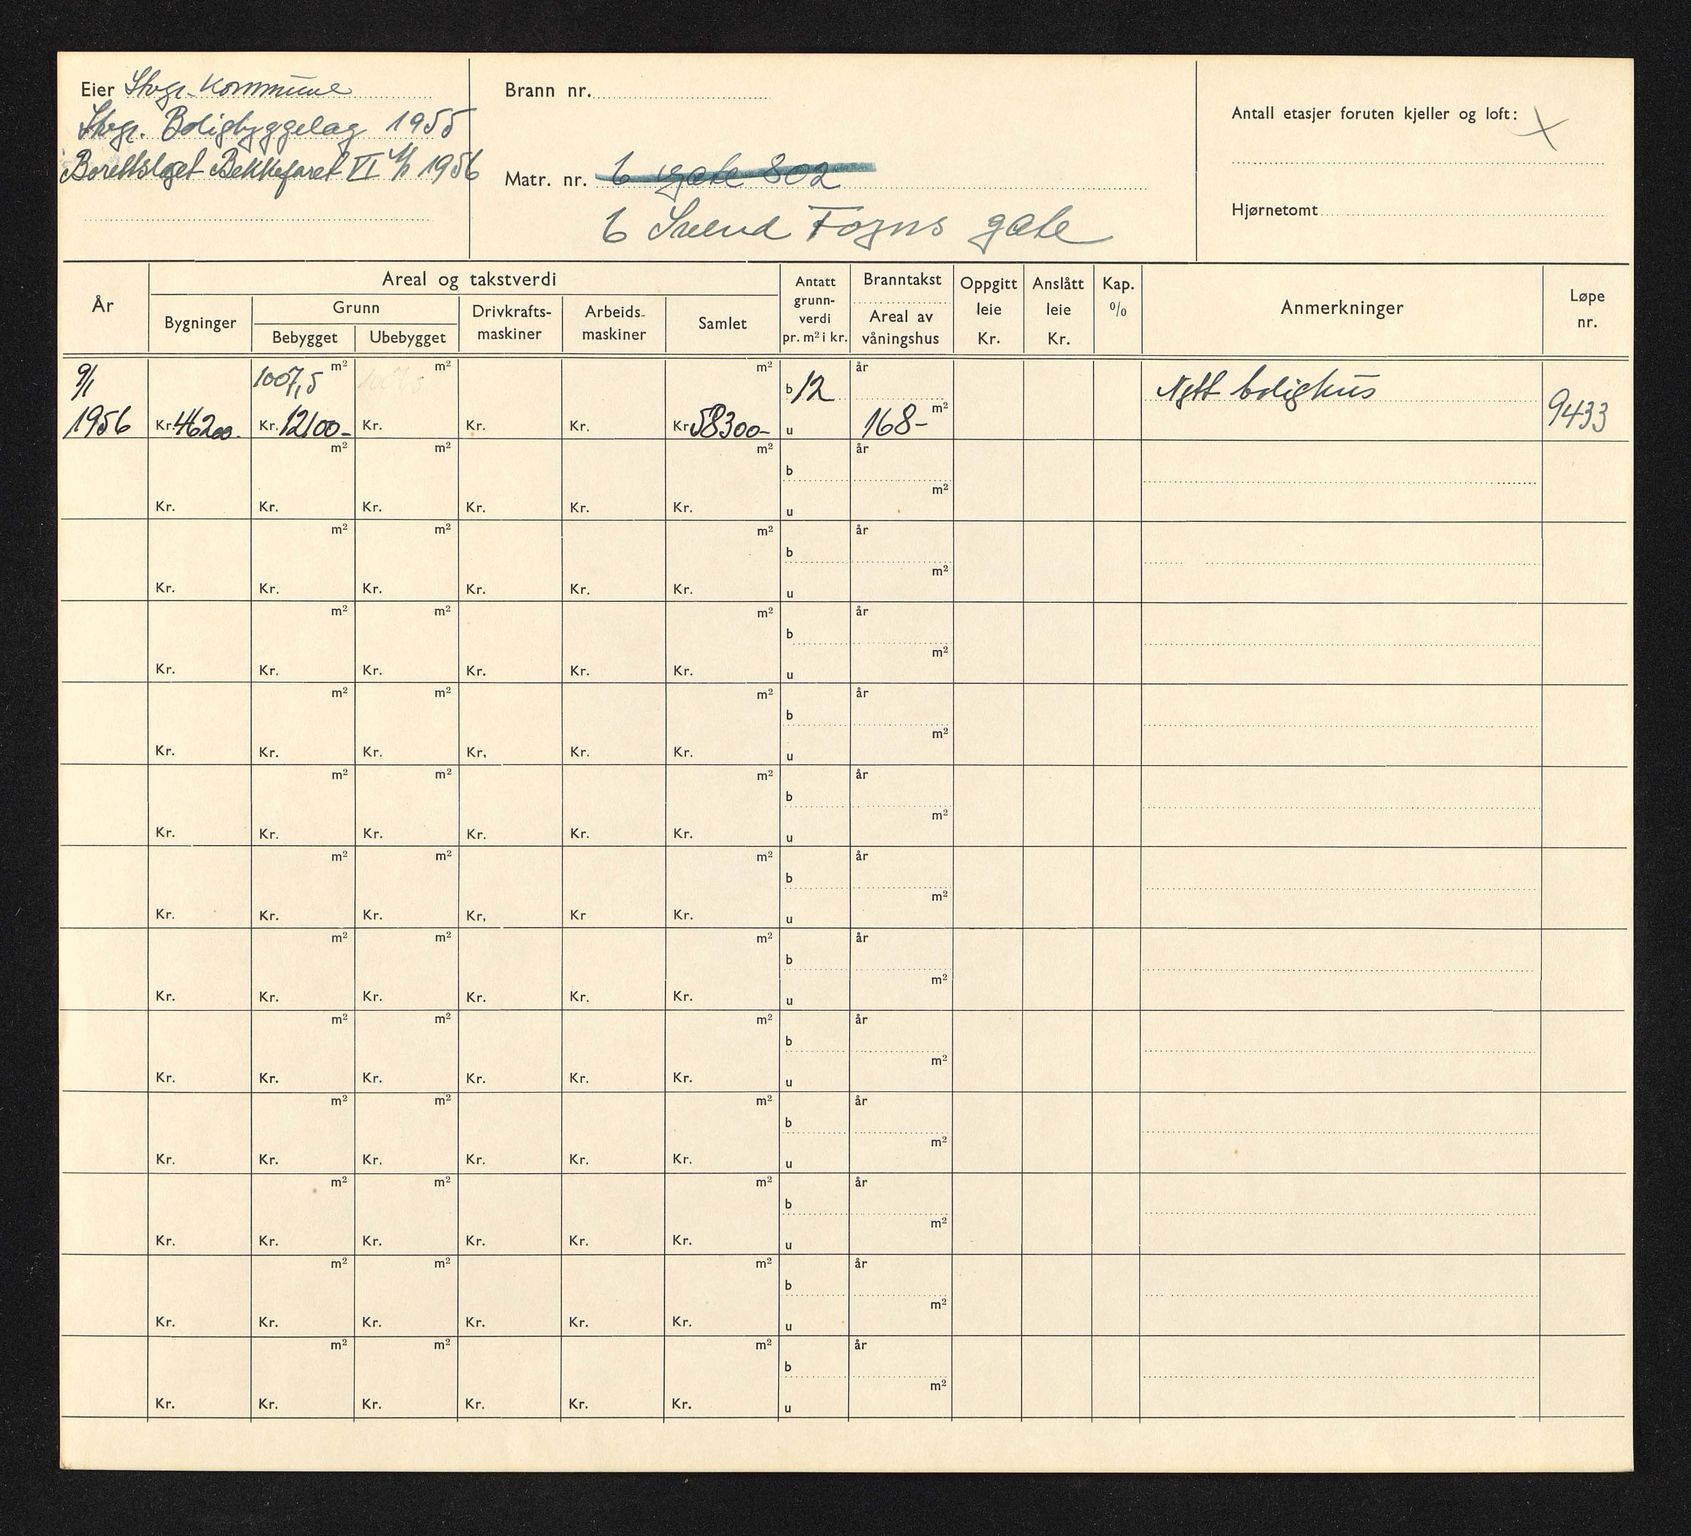 Eier Stvgr. Kommune
Stvgr. Boligbyggelag 1955
Borettslaget Bekkefaret VI A/S 1956
Brann nr.
Matr. nr. 6 gate 802
6 Svend Foyns gate
Antall etasjer foruten kjeller og loft: X
Hjørnetomt
År
Areal og takstverdi
Bygninger
Grunn
Bebygget Ubebygget
Drivkrafts-
maskiner
Arbeids-
maskiner
Samlet
Antatt
grunn-
verdi
pr. m² i kr.
Branntakst
Areal av
våningshus
Oppgitt
leie
Kr.
Anslått
leie
Kr.
Kap.
%
Anmerkninger
Løpe
nr.
9/1 1007,5 m² m² m² b 12 år Nytt bolighus
1956 Kr. 46200.- Kr. 12100- Kr. Kr. Kr. Kr. 58300- u 168- m² 9433
m² m² m² b år
Kr. Kr. Kr. Kr. Kr. Kr. u m²
m² m² m² b år
Kr. Kr. Kr. Kr. Kr. Kr. u m²
m² m² m² b år
Kr. Kr. Kr. Kr. Kr. Kr. u m²
m² m² m² b år
Kr. Kr. Kr. Kr, Kr. Kr. u m²
m² m² m² b år
Kr. Kr. Kr. Kr. Kr. Kr. u m²
m² m² m² b år
Kr. Kr. Kr. Kr, Kr Kr. u m²
m² m² m² b år
Kr. Kr. Kr. Kr. Kr. Kr. u m²
m² m² m² b år
Kr. Kr. Kr. Kr. Kr. Kr. u m²
m² m² m² b år
Kr. Kr. Kr. Kr. Kr. Kr. u m²
m² m² m² b år
Kr. Kr. Kr. Kr. Kr. Kr. u m²
m² m² m² b år
Kr. Kr. Kr. Kr. Kr. Kr. u m²
m² m² m² b år
Kr. Kr. Kr. Kr. Kr. Kr. u m²